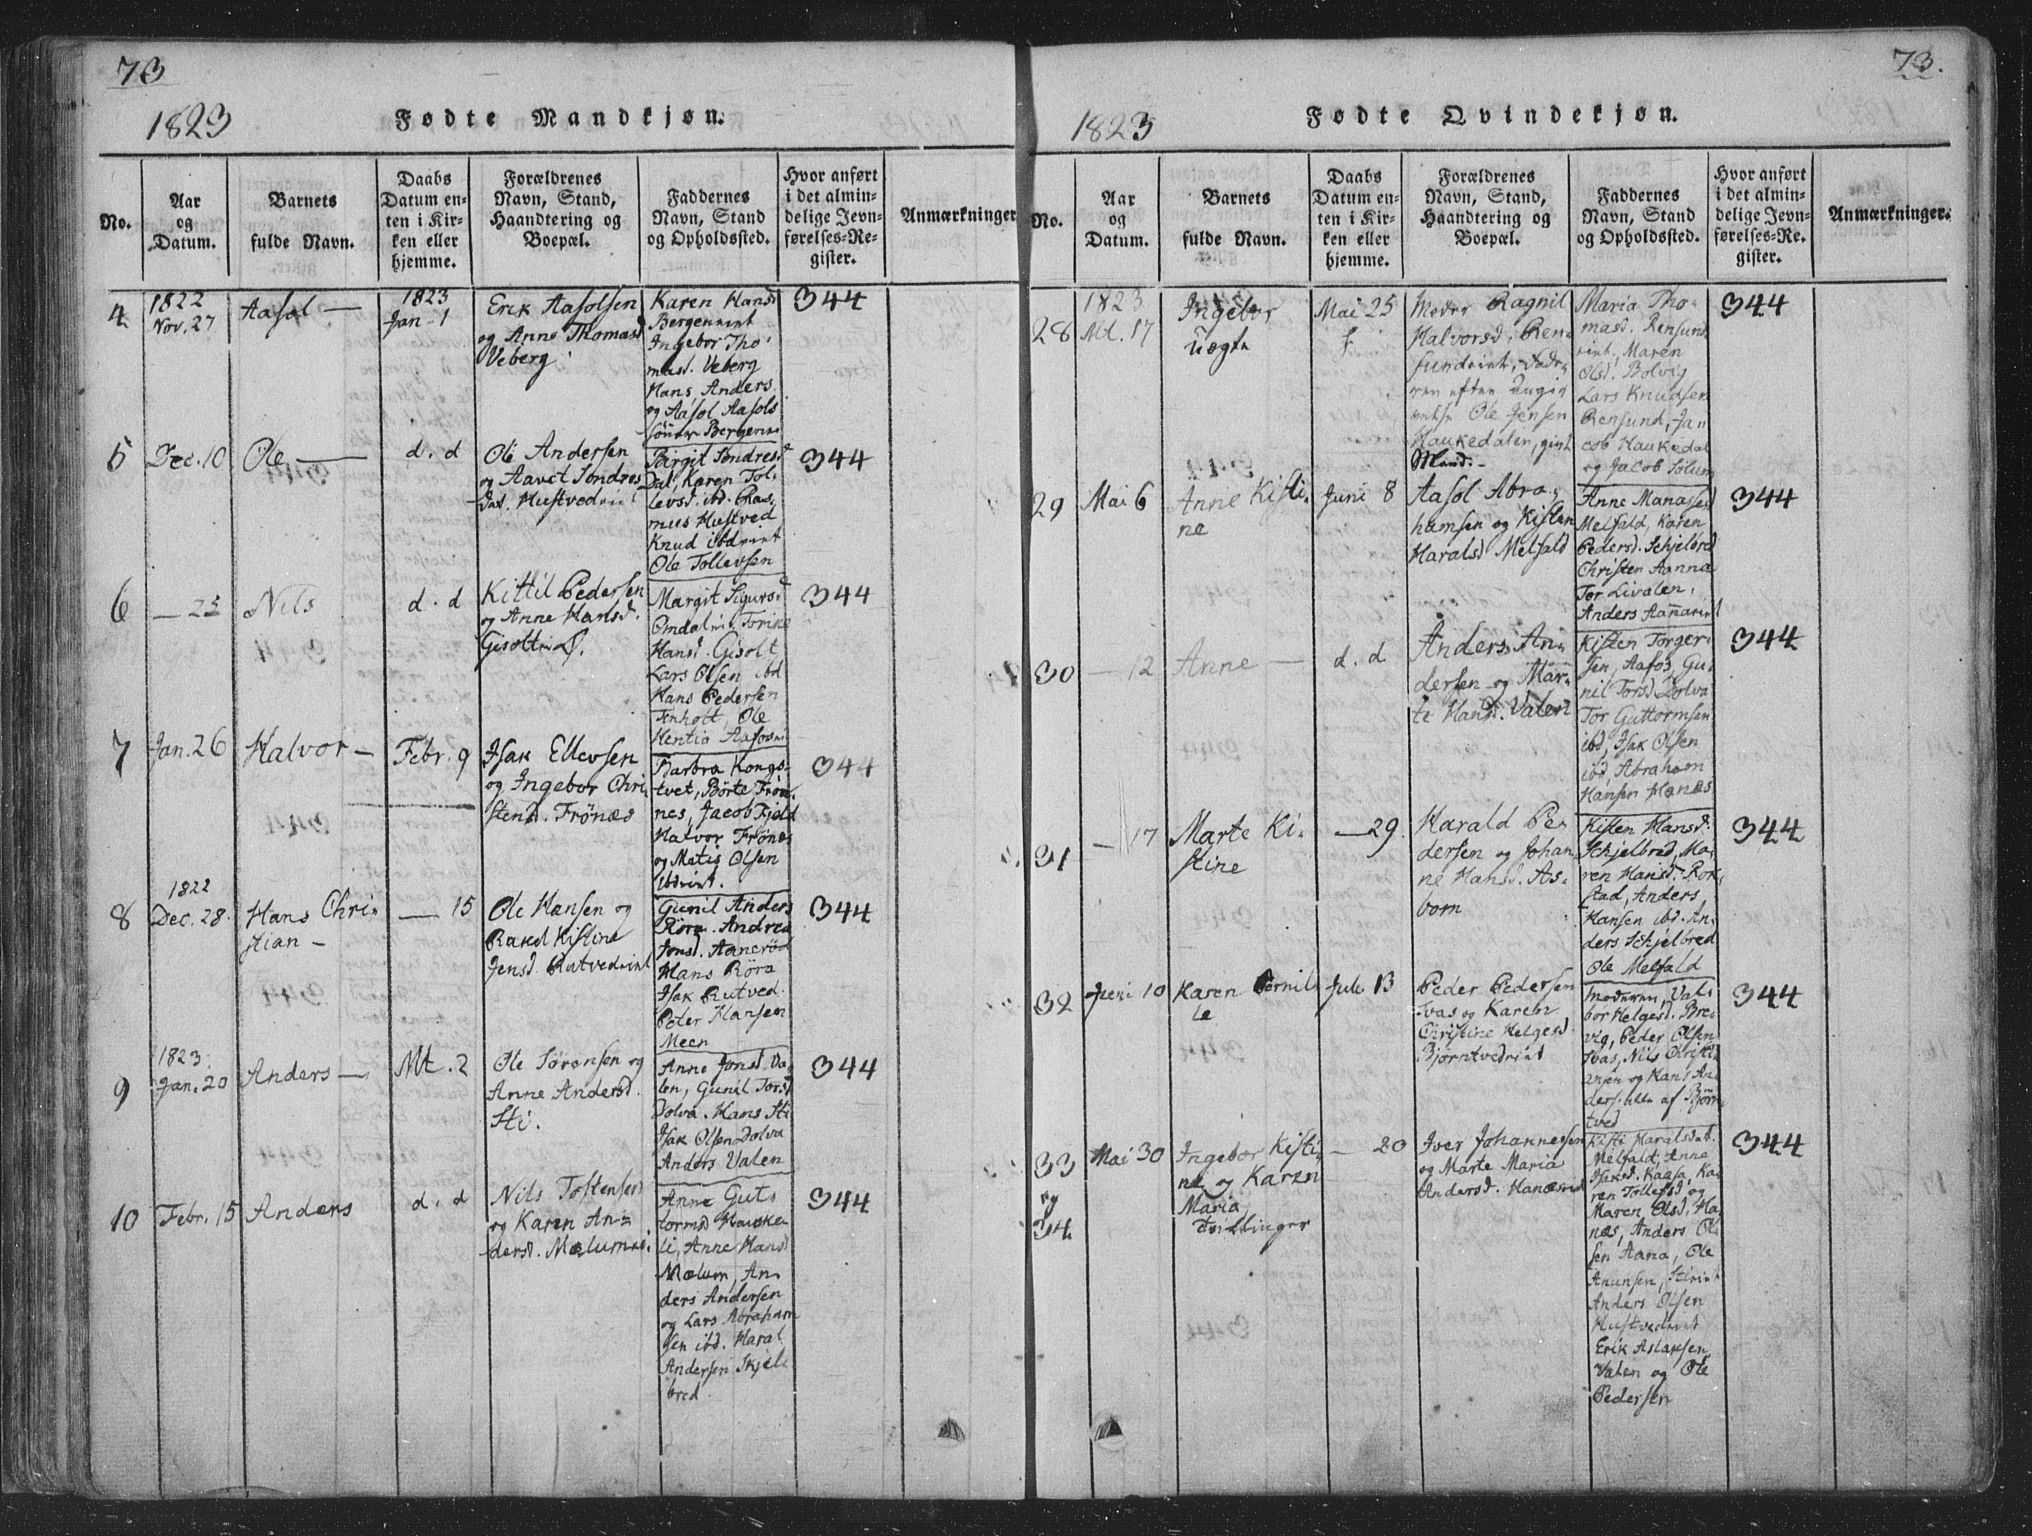 73
1823
Fødte Mandkjøn.
No.
Aar
og
Datum.
Barnets
fulde Navn.
Daabs
Datum en-
ten i Kir-
ken eller
hjemme.
Forældrenes
Navn, Stand,
Haandtering og
Boepæl.
Faddernes
Navn, Stand
og Opholdssted.
Hvor anført
i det almin-
delige Jevn-
førelses-Re-
gister.
Anmærkninger
4
1822
Nov. 27
Aasol —
1823
Jan. 1
Erik Aasolsen
og Anne Thomasd
Veberg
Karen Hansd
Bergen
Ingebor Tho-
masd. Veberg
Hans, Anders
og Aasol Aasols
sönner Bergen
344
5
Dec. 10
Ole —
d. d
Ole Andersen
og Aavet Sondres
Dat. Hustved
Birgit Sondresd
Dal, Karen Tol-
levsd. ibd. Ras-
mus Hustved
Knud ibd
Ole Tollevsen
344
6
— 25
Nils
d. d
Kittil Pedersen
og Anne Hansd.
Gisolt
Margit Sigursd
Omdal, Torine
Hansd. Gisolt
Lars Olsen ibd
Hans Pedersen
Tenholt, Ole
Hentia Aafos
344
7
Jan. 26
Halvor —
Febr. 9
Isak Ellevsen
og Ingebor Chri-
stensd. Frönæs
Barbra Kongs-
tvet, Börte Frön-
nes, Jacob Fjeld
Halvor Frönæs
og Matis Olsen
344
8
1822
Dec. 28.
Hans Chri-
stian —
— 15
Ole Hansen og
Kistine
Jensd. Rutved
Gunil Anders
Röra. Andrea
Jonsd. Aaneröd
Hans Röra
Isak Rutved.
Peter Hansen
Meen
344
9
1823
Jan. 20
Anders —
Mt. 2
Ole Sörensen og
Anne Andersd.
Sti.
Anne Jonsd Va-
len, Gunil Torsd
Dolva. Hans Sti
Isak Olsen Dolva
Anders Valen
344
10
Febr. 15
Anders
d. d
Nils Tostensen
og Karen An-
dersd. Mælum
Anne Gut-
tormsd Hauke-
li, Anne Hansd
Mælum, An-
ders Andersen
og Lars Abraham
sen ibd. Haral
Andersen Skjel-
bred
344
73.
1823
Fødte Qvindekjøn.
No.
Aar
og
Datum.
Barnets
fulde Navn.
Daabs
Datum en-
ten i Kir-
ken eller
hjemme.
Forældrenes
Navn, Stand,
Haandtering og
Boepæl.
Faddernes
Navn, Stand
og Opholdssted.
Hvor anført
i det almin-
delige Jevn-
førelses-Re-
gister.
Anmærkninger.
28
1823
Mt. 17
Ingebor
uægte
Mai 25
Moder Ragnil
Halvorsd. Ren-
sund, Fader-
ren efter Angiv
Ole Jensen
Haukedalen, givt
Mand. —
Maria Tho-
masd. Rensund
Maren
Olsd. Bolvig
Lars Knudsen
Rensund, Ja-
cob Haukedal
og Jacob Solum
344
29
Mai 6
Anne Kisti-
ne
Juni 8
Aasol Abra-
hamsen og Kisten
Haralsd Melfald
Anne Manases
Melfald, Karen
Pedersd. Schjelbred
Christen Aanna
Tor Livalen,
Anders Aanna
344
30
— 12
Anne —
d. d
Anders An-
dersen og Mar-
te Hansd. Valen
Kisten Torger-
sen, Aafos, Gu-
nil Torsd. Dolva
Tor Guttormsen
ibd, Isak Olsen
ibd, Abraham
Hansen Hanæs
344
31
— 17
Marte Ki-
stine
— 29.
Harald Pe-
dersen og Johan
ne Hansd. As-
born
Kisten Hansd.
Schjelbred, Ma-
ren Hansd. Rok-
stad, Anders
Hansen ibd. An-
ders Schjelbred
Ole Melfald
344
32
Juni 10
Karen Pernil-
le
Juli 13
Peder Pedersen
Tvas og Karen
Christine Helgesd.
Björntved
Moderen, Val-
bor Helgesd. Bre-
vig, Peder Olsen
Tvas, Nils Christi-
ansen og Hans An-
ders alle af Björn-
tved
344
33
og
34
Mai 30
Ingebor Kisti-
ne og Karen
Maria
Tvillinger
— 20
Iver Johannessen
og Marte Maria
Andersd. Hanæs
Kisti Haralsdat.
Melfald, Anne
Isaksd. Kaasa, Ka-
ren Tollefsd og
Maren Olsd. Ha-
næs, Anders Ol-
sen Aana, Ole
Anunsen,
Anders Olsen
Hustved
Erik Aslaksen
Valen og Ole
Pedersen
344